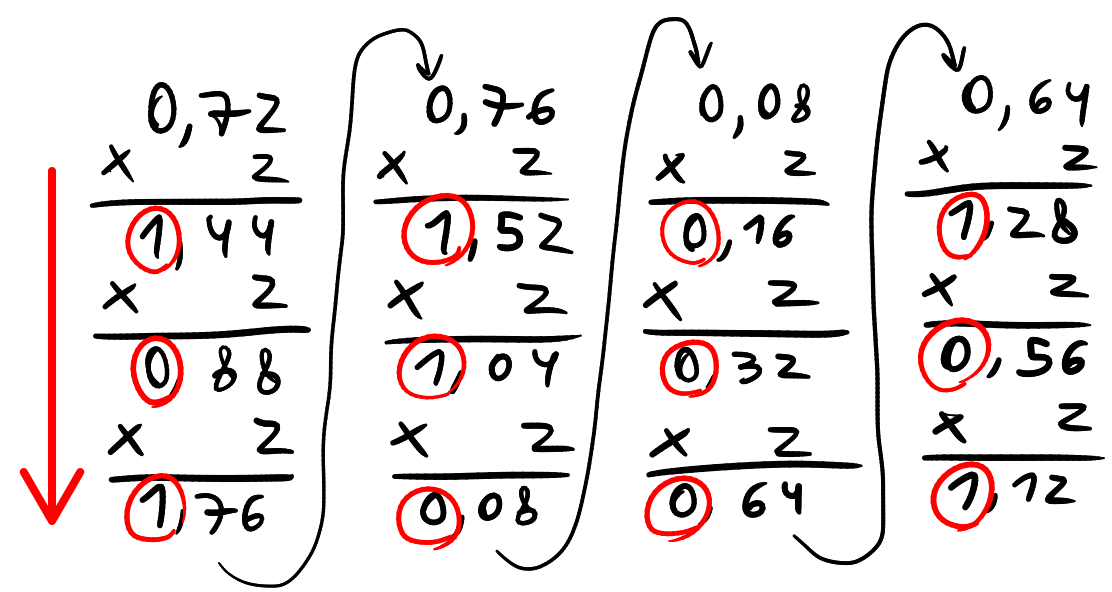 0,72
x 2
1,44
x 2
0,88
x 2
1,76
0,76
x 2
1,52
x 2
1,04
x 2
0,08
0,08
x 2
0,16
x 2
0,32
x 2
0,64
0,64
x 2
1,28
x 2
0,56
x 2
1,12